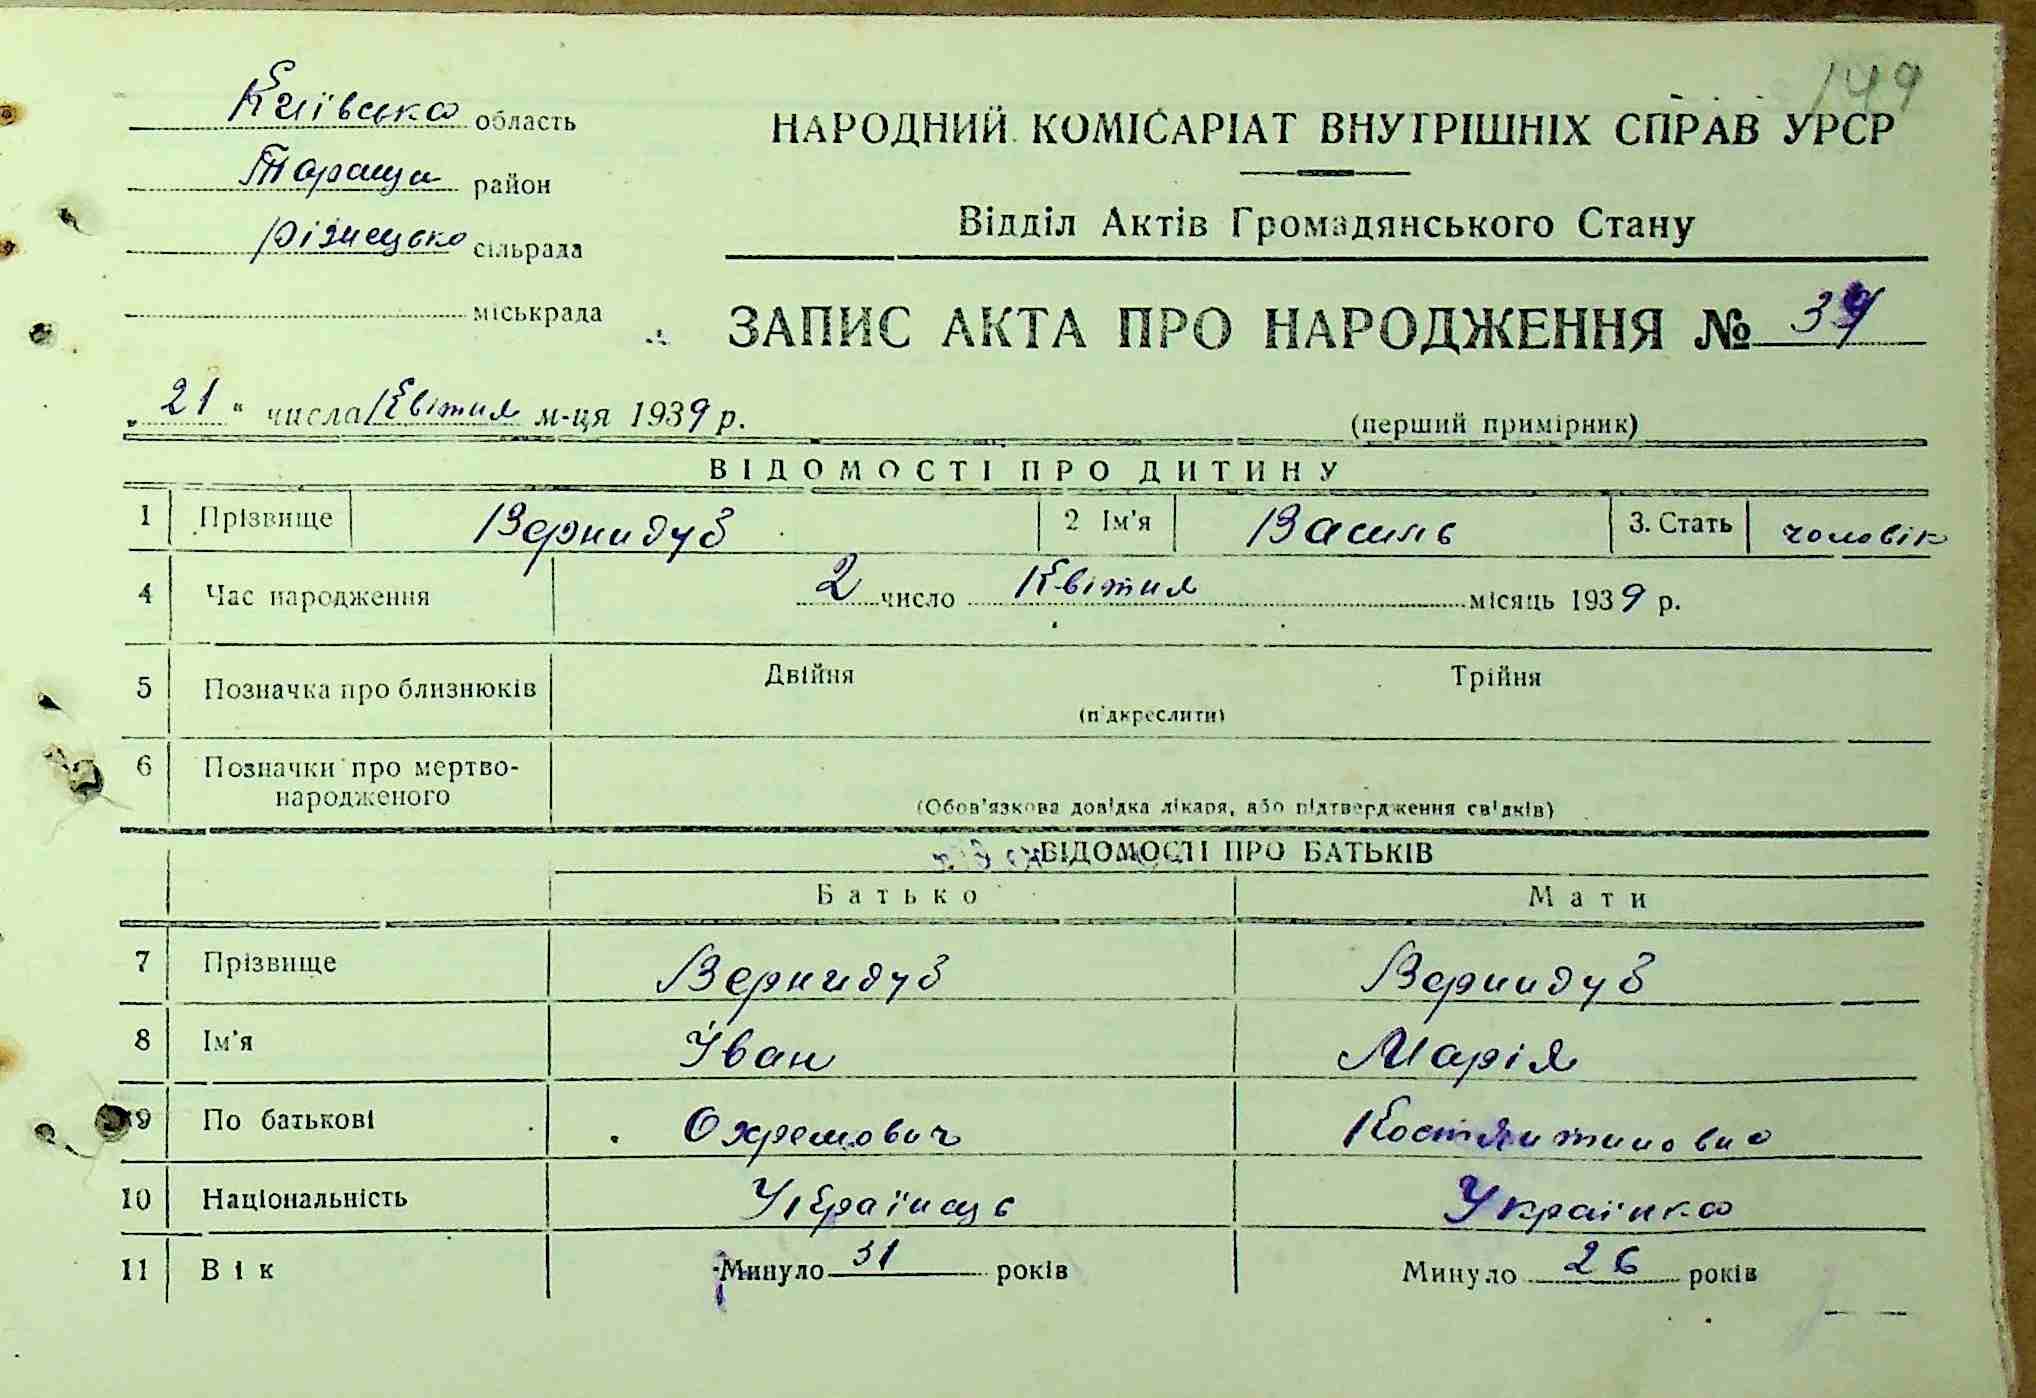 149
Київська область
Тараща район
Різнецько сільрада
міськрада
НАРОДНИЙ КОМІСАРІАТ ВНУТРІШНІХ СПРАВ УРСР
Відділ Актів Громадянського Стану
ЗАПИС АКТА ПРО НАРОДЖЕННЯ № 39
„21“ числа Квітня м-ця 1939 р.
(перший примірник)
ВІДОМОСТІ ПРО ДИТИНУ
1 Прізвище Вернидуб 2 Ім'я Василь 3. Стать чоловік
4 Час народження 2 число Квітня місяць 1939 р.
5 Позначка про близнюків Двійня Трійня
(підкреслити)
6 Позначки про мертво-
народженого
(Обов'язкова довідка лікаря, або підтвердження свідків)
ВІДОМОСТІ ПРО БАТЬКІВ
Батько Мати
7 Прізвище Вернидуб Вернидуб
8 Ім'я Іван Марія
9 По батькові Охремович Костянтиновна
10 Національність Українець Українка
11 Вік Минуло 31 років Минуло 26 років